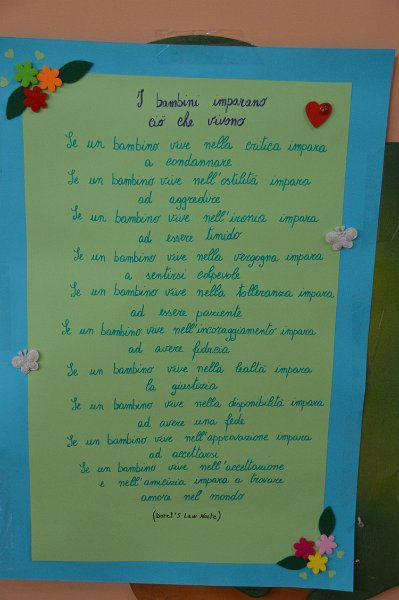 I bambini imparano
ciò che vivono
Se un bambino vive nella critica impara
a condannare
Se un bambino vive nell'ostilità impara
ad aggredire
Se un bambino vive nell'ironia impara
ad essere timido
Se un bambino vive nella vergogna impara
a sentirsi colpevole
Se un bambino vive nella tolleranza impara
ad essere paziente
Se un bambino vive nell'incoraggiamento impara
ad avere fiducia
Se un bambino vive nella lealtà impara
la giustizia
Se un bambino vive nella disponibilità impara
ad avere una fede
Se un bambino vive nell'approvazione impara
ad accettarsi
Se un bambino vive nell'accettazione
e nell'amicizia impara a trovare
amore nel mondo
(Doret'S Law Nolte)